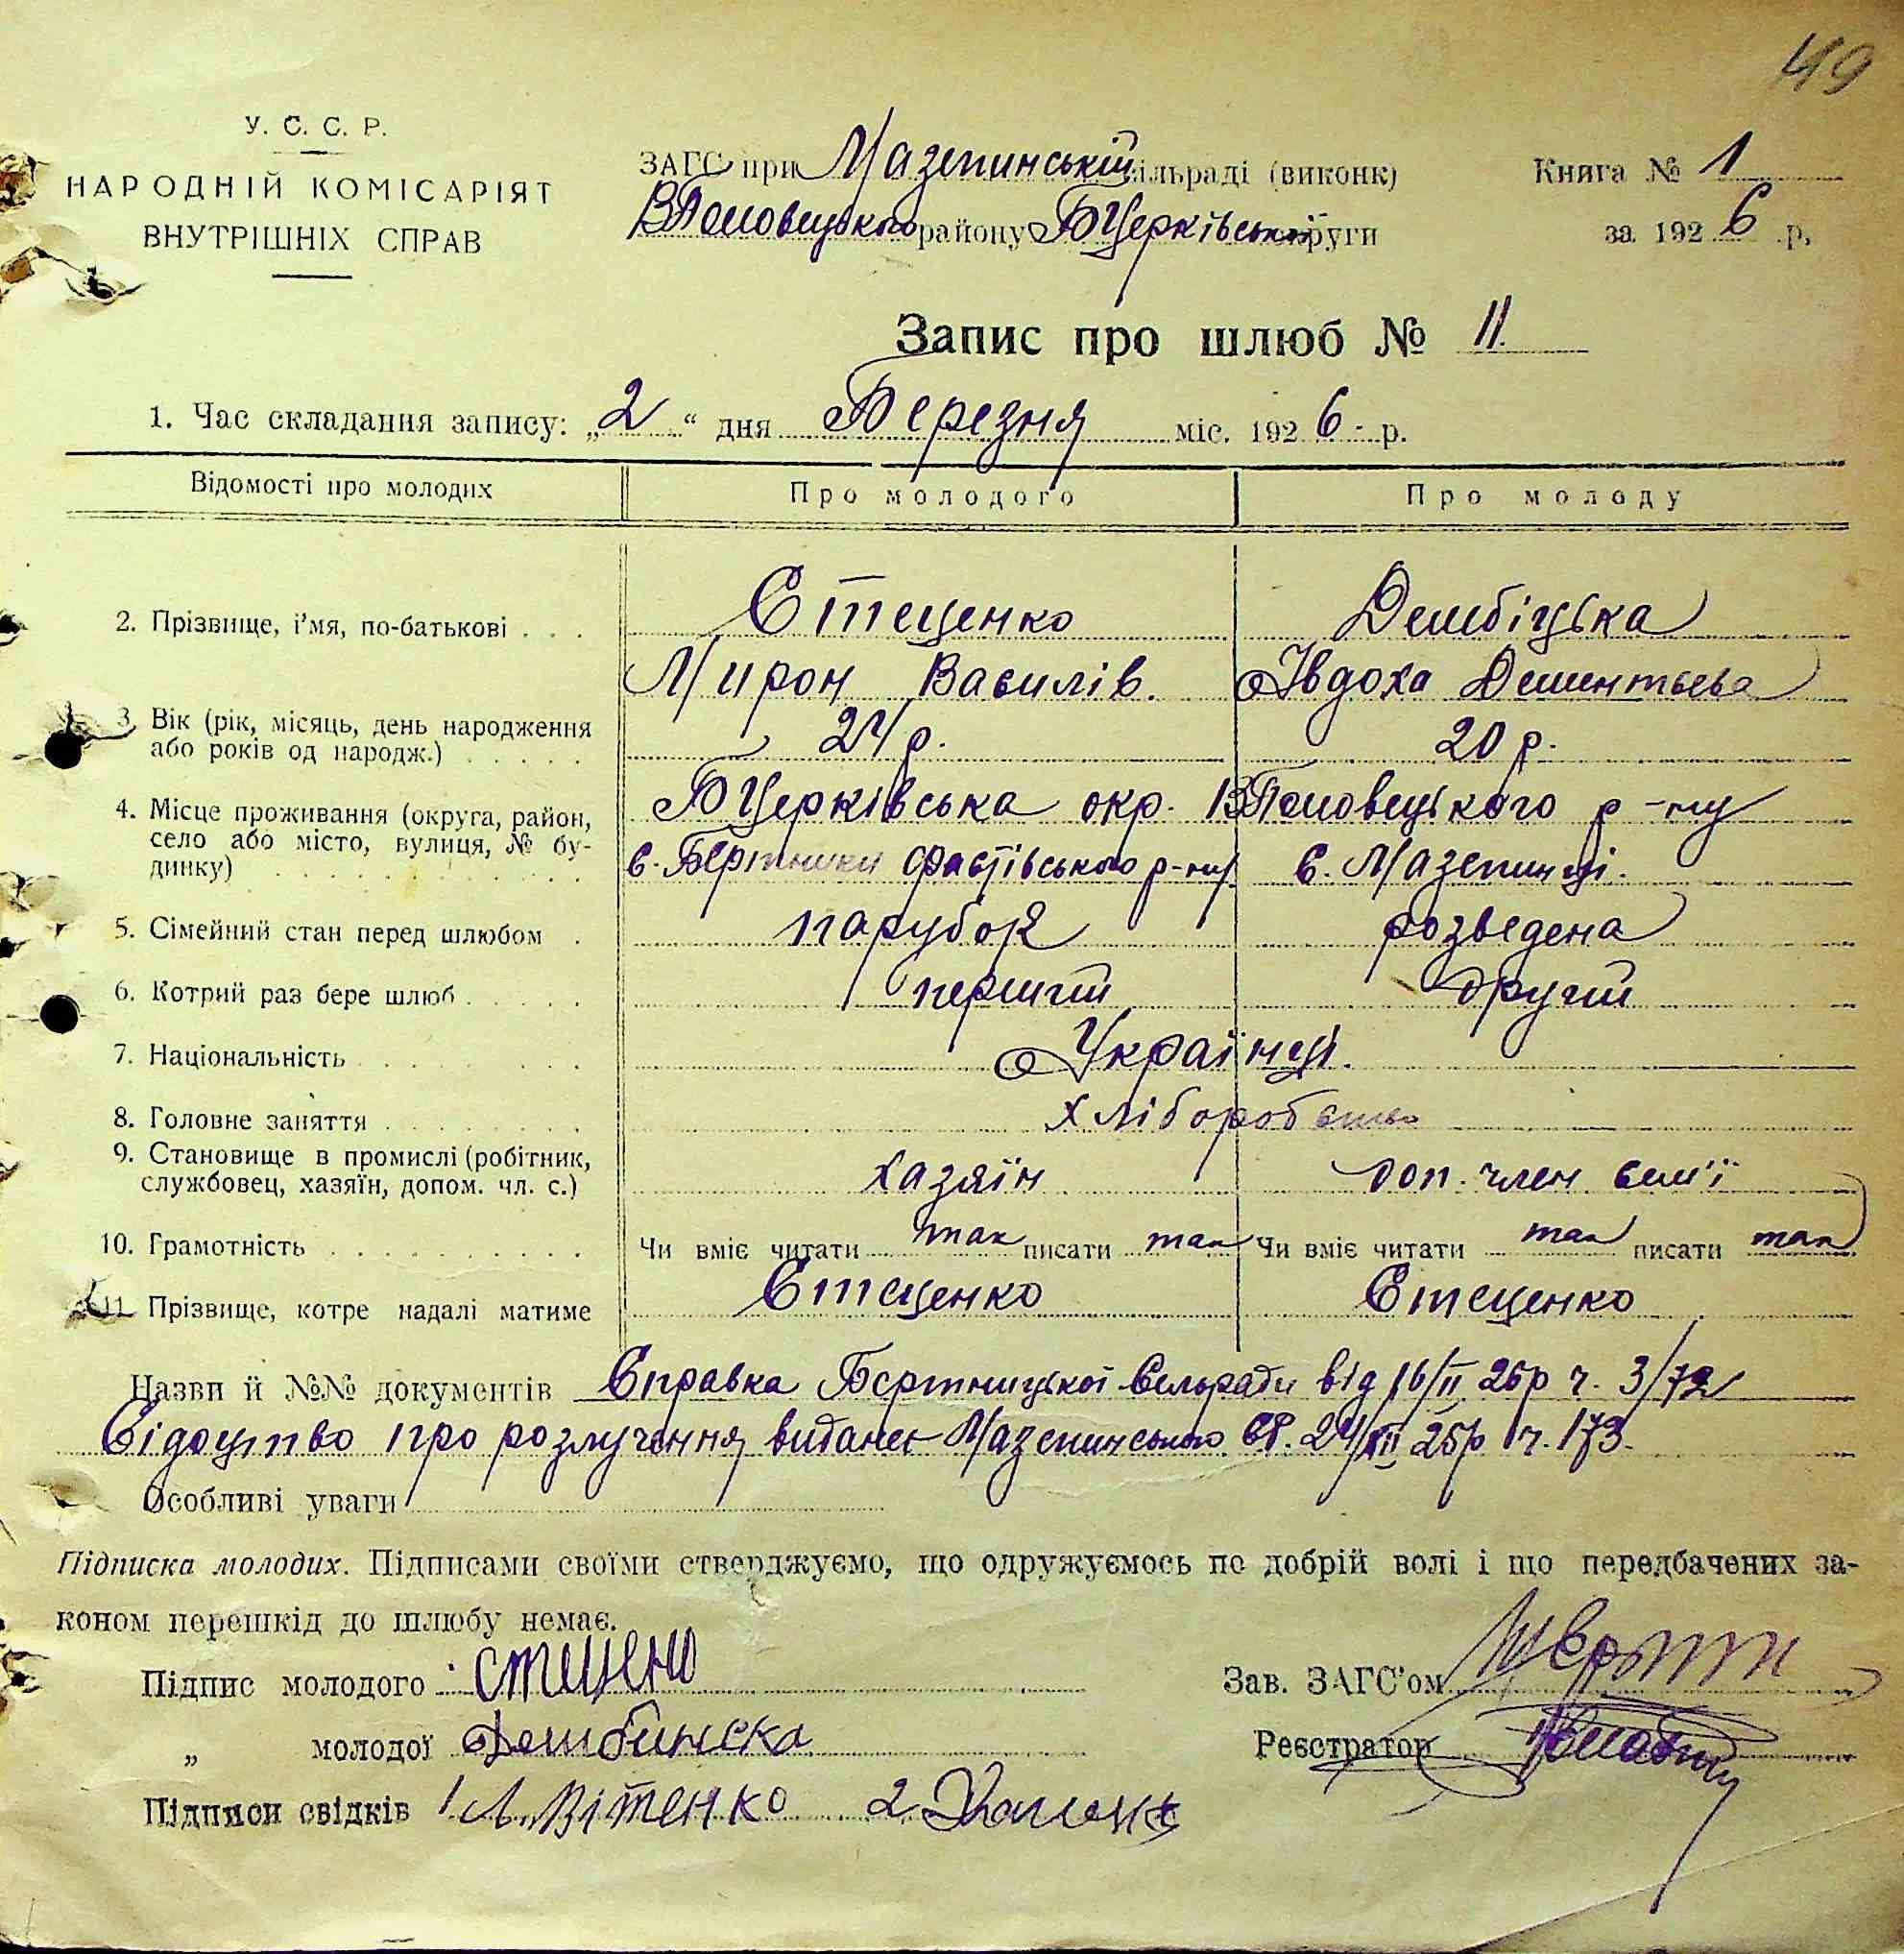 49
У. С. С. Р.
НАРОДНІЙ КОМІСАРІЯТ
ВНУТРІШНІХ СПРАВ
ЗАГС при Мазепинській сільраді (виконк)
ВПоловецького району БЦерківської округи
Книга № 1
за 1926 р.
Запис про шлюб № 11.
1. Час складання запису: „2“ дня Березня міс. 1926 р.
Відомості про молодих Про молодого Про молоду
2. Прізвище, і'мя, по-батькові . . . Стеценко Дембіцька
Мирон Василів. Явдоха Дементьева
3. Вік (рік, місяць, день народження або років од народж.) 24 р. 20 р.
4. Місце проживання (округа, район, БЦерківська окр. ВПоловецького р-ну
село або місто, вулиця, № бу- с. Бертники Фастівського р-ну с. Мазепинці.
динку)
5. Сімейний стан перед шлюбом . парубок розведена
6. Котрий раз бере шлюб перший другий
7. Національність Українці.
8. Головне заняття хліборобство
9. Становище в промислі (робітник,
службовец, хазяїн, допом. чл. с.) хазяїн доп. член сем'ї
10. Грамотність Чи вміє читати так писати так Чи вміє читати так писати так
11 Прізвище, котре надалі матиме Стеценко Стеценко
Назви й №№ документів Справка Бертницької Сельради від 16/II 26р ч. 3/72
Свідоцтво про розлучення видане Мазепинською СР. 24/XII 25р ч. 173.
Особливі уваги
Підписка молодих. Підписами своїми стверджуємо, що одружуємось по добрій волі і що передбачених за-
коном перешкід до шлюбу немає.
Підпис молодого стецено
Зав. ЗАГС'ом
„ молодої Дембинска
Реєстратор
Підписи свідків 1. Л. Вітенко 2.